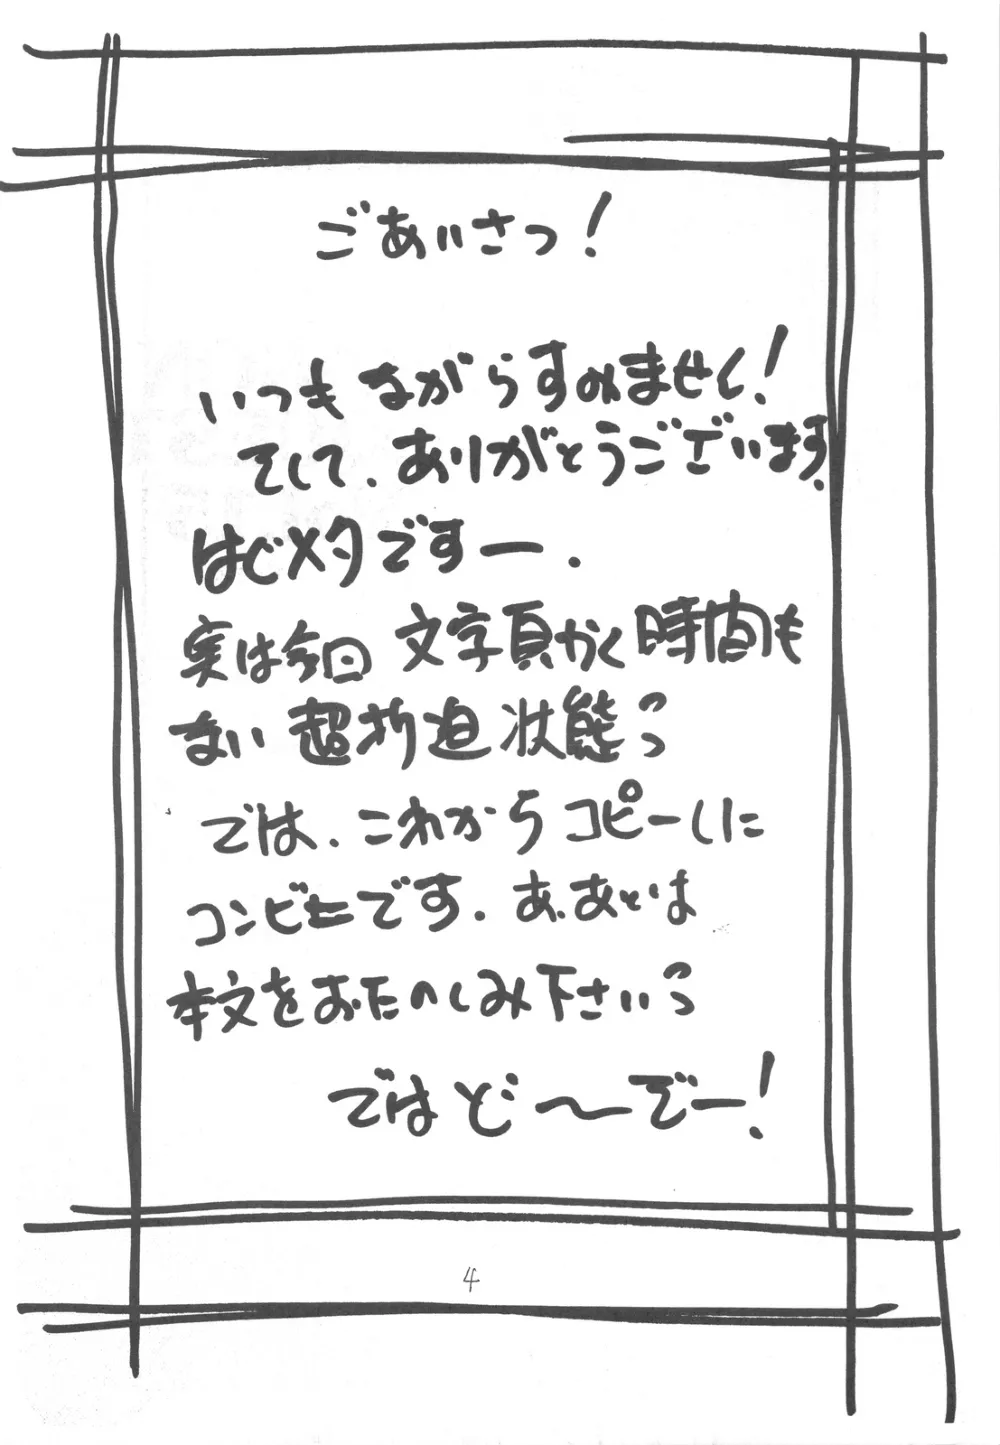 ごあいさつ!
いつもながらすみません!
そして、ありがとうございます。
はじメタですー.
実は今回 文字頁かく時間も
ない 超折迫 状態っ
では、これからコピーしに
コンビニです. あ、あとは
本文をおたのしみ下さいっ
ではど〜ぞー!
4